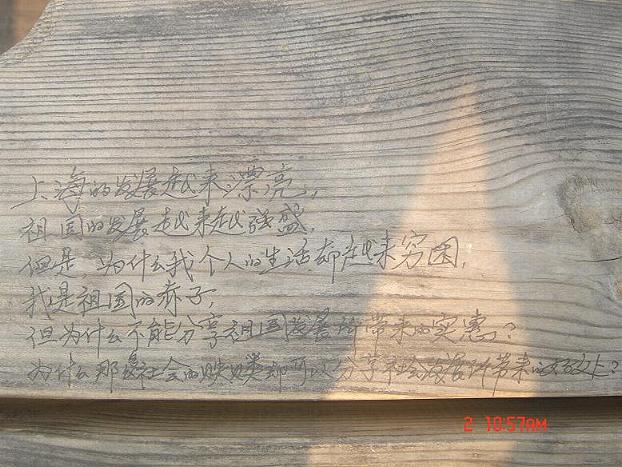 上海的发展越来漂亮,
祖国的发展越来越强盛,
但是 为什么我个人的生活却越来穷困,
我是祖国的赤子,
但为什么不能分享祖国发展所带来的实惠?
为什么那些社会的败类却可以分享社会发展所带来的?
2 10:57AM